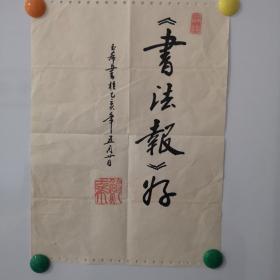 《書法報》好
玉希書於乙亥年五月廿日